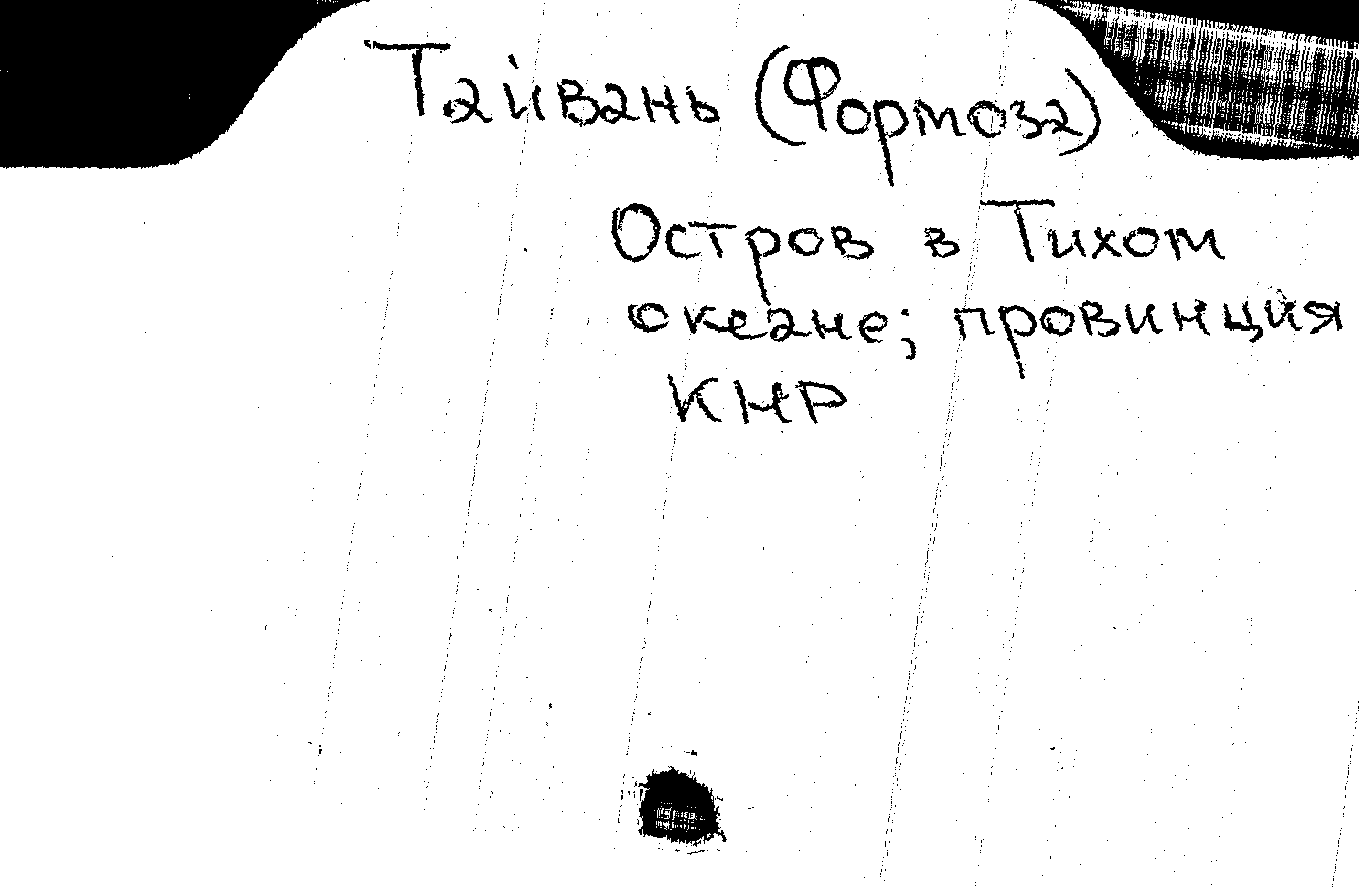 Тайвань (Формоза)
Остров в Тихом
океане; провинция
КНР